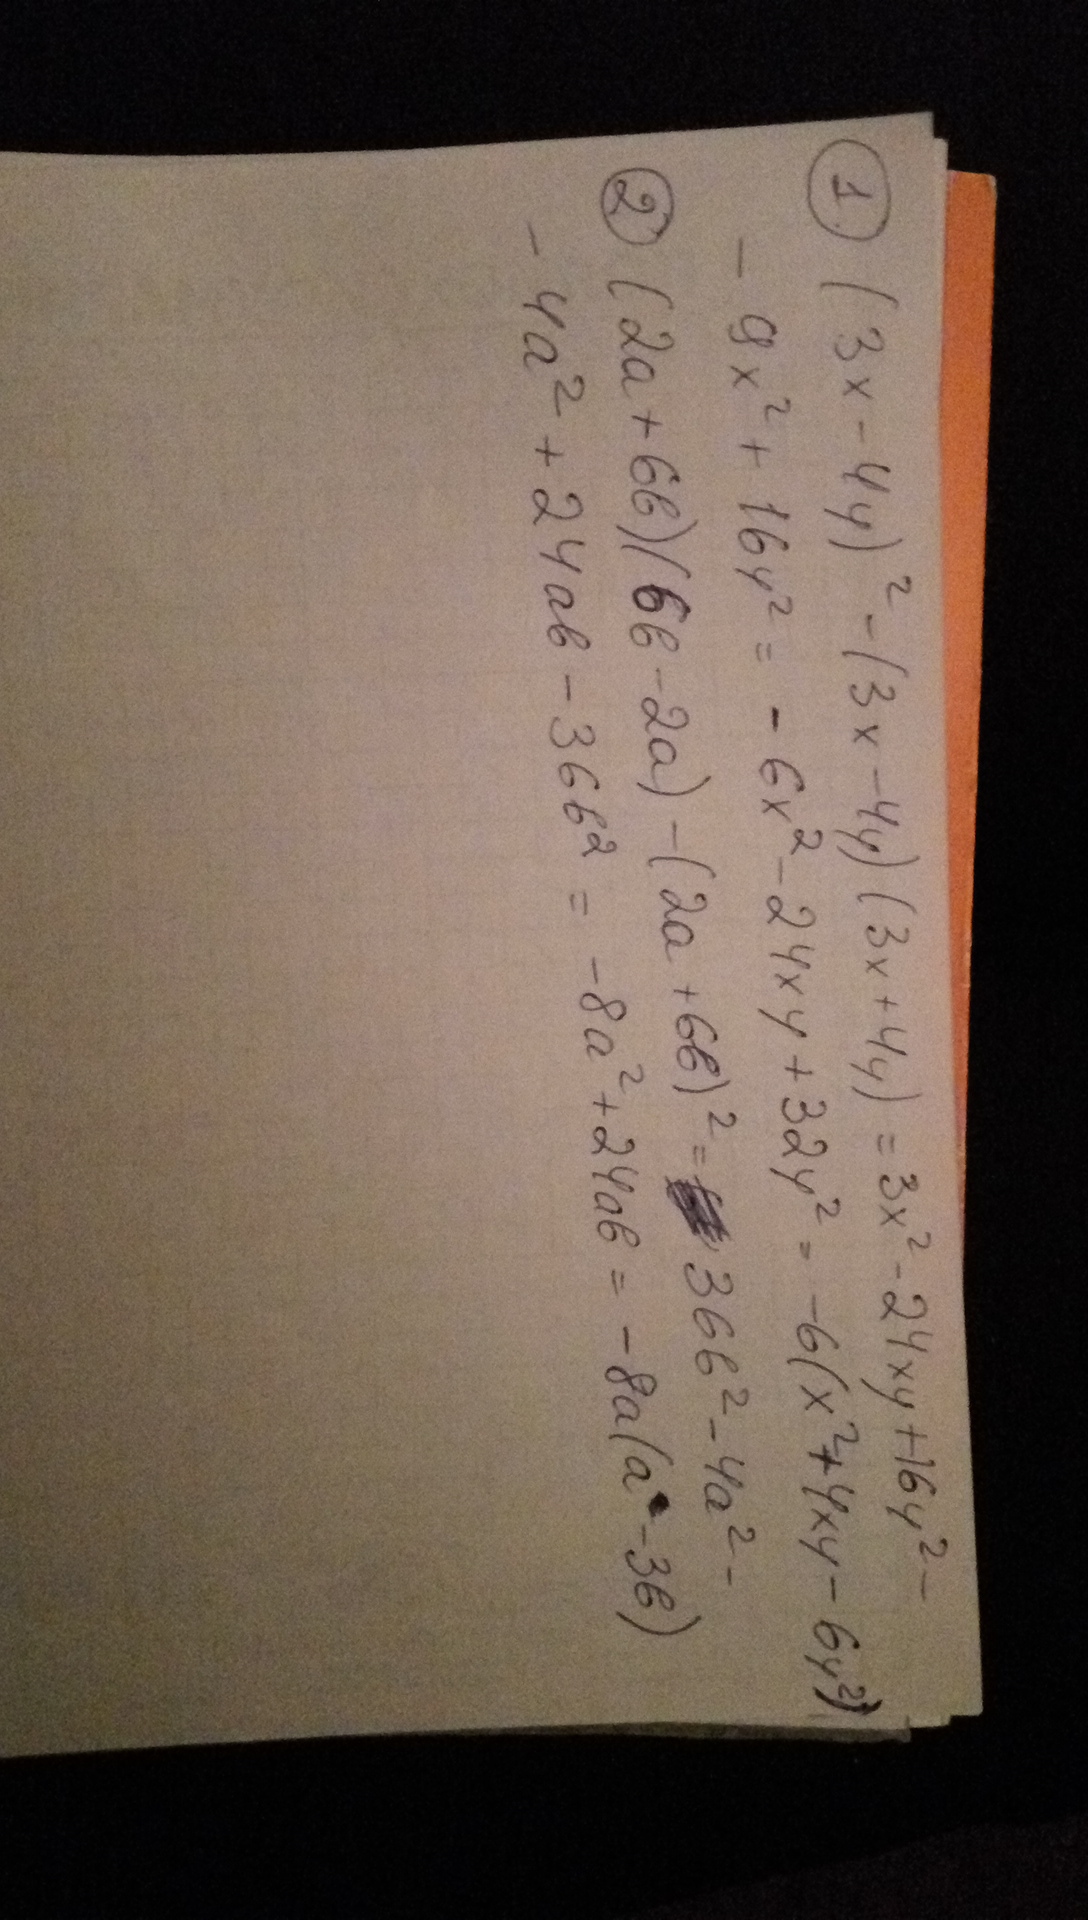 1. (3x-4y)² - (3x-4y)(3x+4y) = 3x² - 24xy + 16y² -
- 9x² + 16y² = - 6x² - 24xy + 32y² = -6(x² + 4xy - 6y²)
2 (2a+6b)(6b-2a) - (2a+6b)² = 36b² - 4a² -
- 4a² + 24ab - 36b² = -8a² + 24ab = -8a(a - 3b)